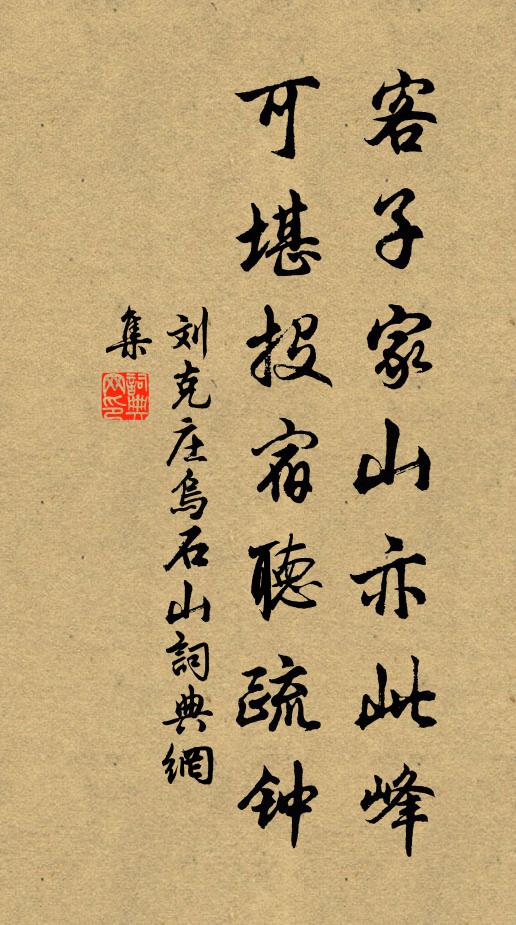 客子家山亦此峰
可堪投宿聽疏钟
刘克庄烏石山詞典網
集
詞典网印